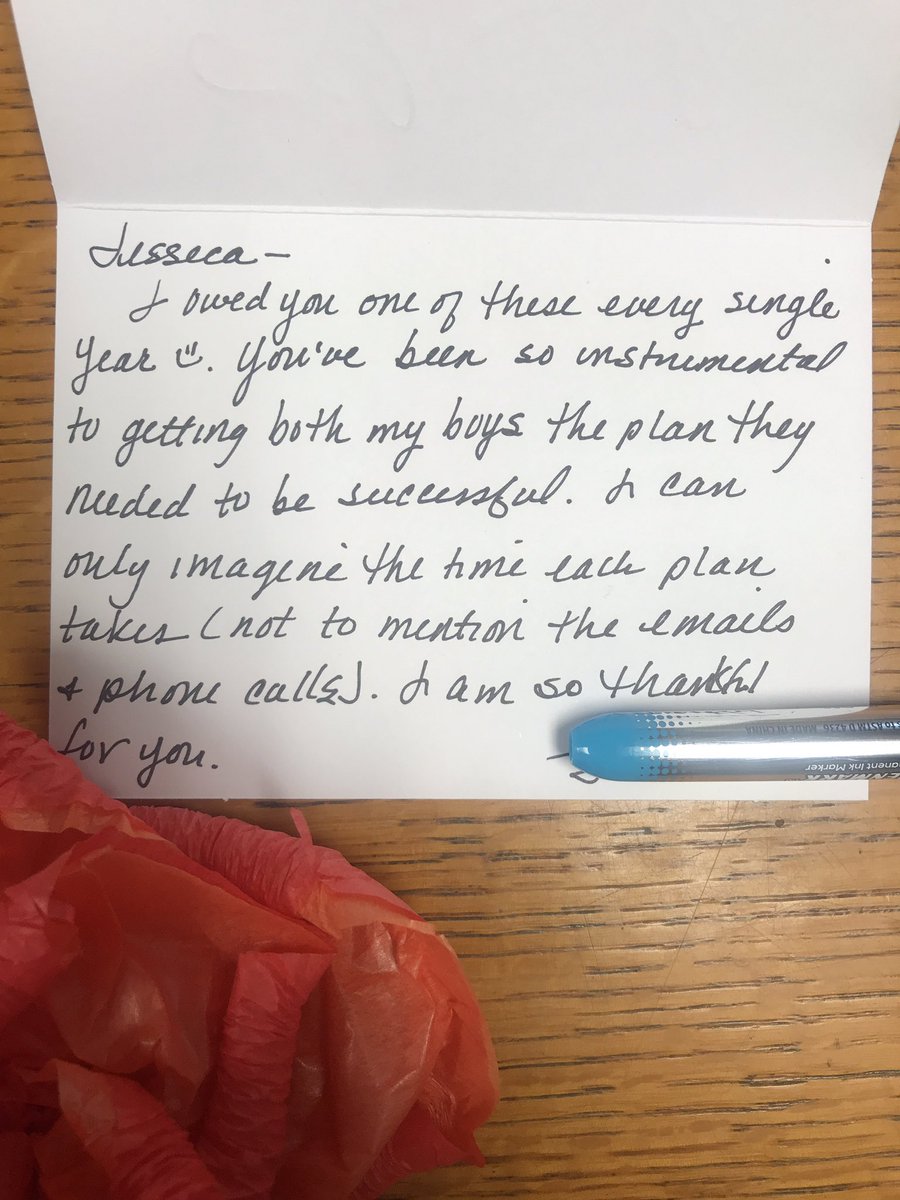 Jesseca -
I owed you one of these every single
year ☺. You've been so instrumental
to getting both my boys the plan they
needed to be successful. I can
only imagine the time each plan
takes (not to mention the emails
+ phone calls). I am so thankful
for you.
TO ASTM D 4236 MADE IN CHINA
anent Ink Marker